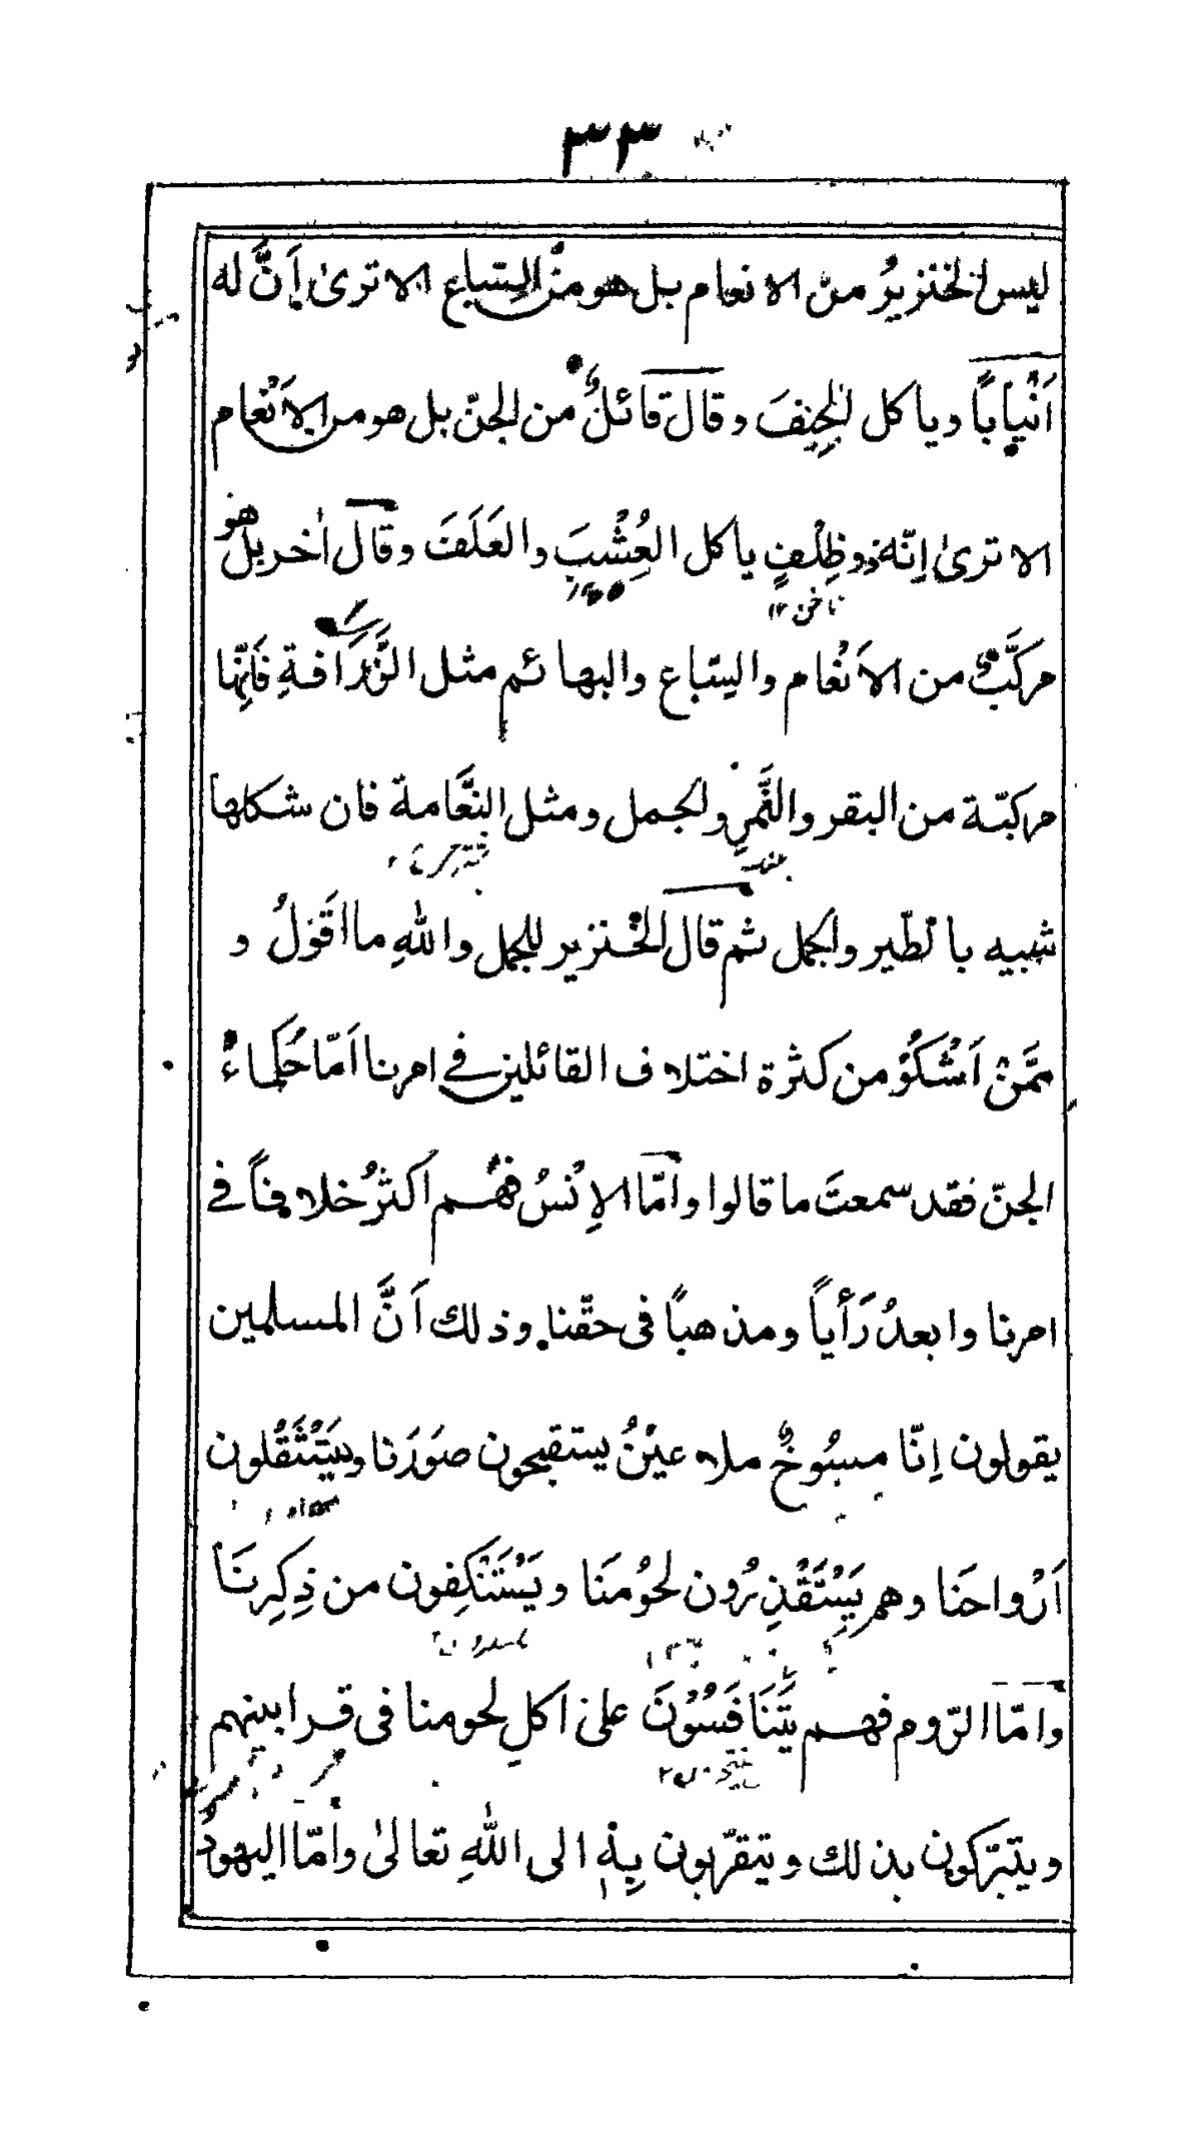 ٣٣
ليس الخنزيرُ من الانعام بل هو من السّباع الا ترىٰ إَنَّ له
اَنْياباً وياكل الجِيَفَ وقال قائلٌ من الجنّ بل هو من الاَنْعام
الا ترىٰ اِنّه ذو ظِلْفٍ ياكل العُشْبَ والعَلَفَ وقال اٰخر بل هو
ناخن ١٢
مركَّبٌ من الاَنْعام والسّباع والبهائم مثل الزَّرَافةِ فَاِنّها
مركبّة من البقر والنَّمِرِ والجمل ومثل النَّعَامة فان شكلها
شبيه بالطّير والجمل ثم قال الخنزير للجمل واللهِ ما اقَوْلُ و
مِمَّنْ اَشْكُوْ من كثرة اختلاف القائلين في امرنا اَمّا حُكَماءُ
الجنّ فقد سمعتَ ما قالوا وامّا الاِنْسُ فهُم اكثرُ خلافاً في
امرنا وابعدُ رَأْياً ومذهباً فى حقّنا وذلك اَنَّ المسلمين
يقولون اِنّا مسُوخٌ ملاعيْنُ يستقبحون صَوَرَنا ويَسْتَثْقُلون
اَرْواحَنا وهم يَسْتَقْذِرُون لحُوْمَنَا ويَسْتَنْكِفون من ذِكِرِنَا
وامّا الرّوم فهم يَتَنَافَسُوْنَ علىٰ اكلِ لحومنا فى قرابينهم
ويتبَرّكون بذلك ويتقرّبون بِهٖ الى اللهِ تعالىٰ وامّا اليهودُ